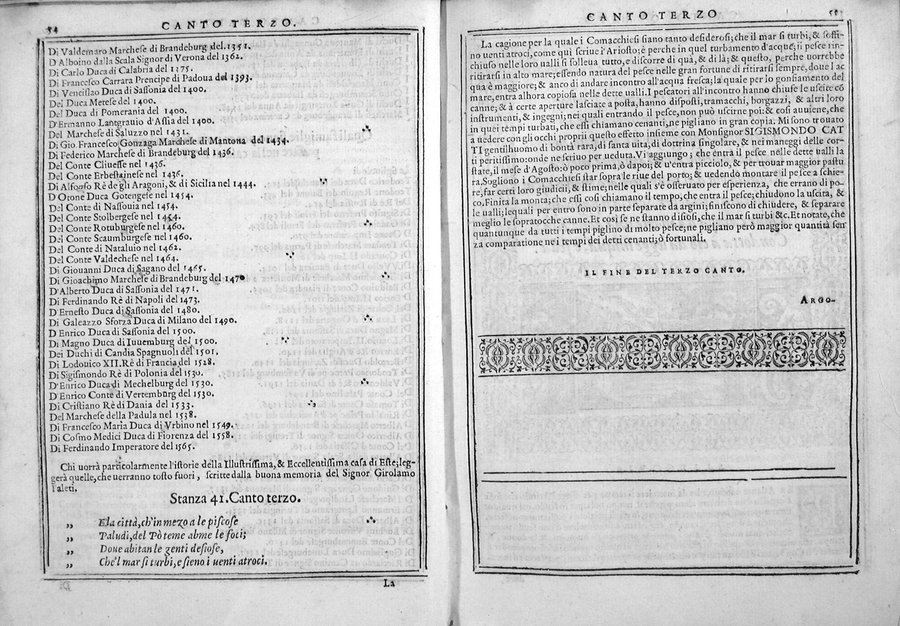 54
CANTO TERZO.
Di Valdemaro Marchese di Brandeburg del. 1351.
D'Alboino dalla Scala Signor di Verona del 1362.
Di Carlo Duca di Calabria del 1375.
Di Francesco Carrara Prencipe di Padoua del 1393.
Di Vencislao Duca di Sassonia del 1400.
Del Duca Metese del 1400.
Del Duca di Pomerania del 1400.
D'Ermanno Lantgrauio d'Assia del 1400.
Del Marchese di Saluzzo nel 1431.
Di Gio Francesco Gonzaga Marchese di Mantona del 1434.
Di Federico Marchese di Brandeburg del 1436.
Del Conte Cliuese nel 1436.
Del Conte Erbestainese nel 1436.
Di Alfonso Rè de gli Aragoni, & di Sicilia nel 1444.
D'Otone Duca Gotengese nel 1454.
Del Conte di Nassouia nel 1454.
Del Conte Stolbergese nel 1454.
Del Conte Rotuburgese nel 1460.
Del Conte Scaumburgese nel 1460.
Del Conte di Nataluio nel 1462.
Del Conte Valdechese nel 1464.
Di Giouanni Duca di Sagano del 1465.
Di Gioachino Marchese di Brandeburg del 147
D'Alberto Duca di Sassonia del 1471.
Di Ferdinando Rè di Napoli del 1473.
D'Ernesto Duca di Sassonia del 1480.
Di Galeazzo Sforza Duca di Milano del 1490.
D'Enrico Duca di Sassonia del 1500.
Di Magno Duca di Iuuemburg del 1500.
Dei Duchi di Candia Spagnuoli del 1501.
Di Lodouico XII. Rè di Francia del 1528.
Di Sigismondo Rè di Polonia del 1530.
D'Enrico Duca di Mechelburg del 1530.
D'Enrico Conte di Vertemburg del 1530.
Di Cristiano Rè di Dania del 1533.
Del Marchese della Padula nel 1538.
Di Francesco Maria Duca di Vrbino nel 1549.
Di Cosmo Medici Duca di Fiorenza del 1558.
Di Ferdinando Imperatore del 1565.
Chi uorrà particolarmente l'istorie della Illustrissima, & Eccellentissima casa di Este; leg-
gerà quelle, che uerranno tosto fuori, scritte dalla buona memoria del Signor Girolamo
Faleti.
Stanza 41. Canto terzo.
„ E la città, ch'in mezo a le piscose
„ Paludi, del Pò teme abme le foci;
„ Doue abitan le genti desiose,
„ Che'l mar si turbi, e sieno i uenti atroci.
La
CANTO TERZO
55
La cagione per la quale i Comacchiesi siano tanto desiderosi; che il mar si turbi, & soffi-
no uenti atroci, come qui scriue l'Ariosto; è perche in quel turbamento d'acque; il pesce rin-
chiuso nelle loro ualli si solleua tutto, e discorre di quà, & di là; & questo, perche uorrebbe
ritirarsi in alto mare; essendo natura del pesce nelle gran fortune di ritirarsi sempre, doue l'ac
qua è maggiore; & anco di andare incontro all'acqua fresca; la quale per lo gonfiamento del
mare, entra alhora copiosa nelle dette ualli. I pescatori all'incontro hanno chiuse le uscite cō
canne; & à certe aperture lasciate a posta, hanno disposti, tramacchi, borgazzi, & altri loro
instrumenti, & ingegni; nei quali entrando il pesce, non può uscirne poi: & così auuiene, che
in quei tempi turbati, che essi chiamano cenanti, ne pigliano in gran copia. Mi sono trouato
a uedere con gli occhi proprii questo effetto insieme con Monsignor SIGISMONDO CAT
TI gentilhuomo di bontà rara, di santa uita, di dottrina singolare, & nei maneggi delle cor-
ti peritissimo: onde ne scriuo per ueduta. Vi aggiungo; che entra il pesce nelle dette ualli la
state, il mese d'Agosto: ò poco prima, ò dapoi; & u'entra picciolo, & per trouar maggior pastu
ra. Sogliono i Comacchiesi star sopra le riue del porto; & uedendo montare il pesce a schie-
re, far certi loro giudicii, & stime; nelle quali s'è osseruato per esperienza, che errano di po-
co. Finita la monta; che essi così chiamano il tempo, che entra il pesce; chiudono la uscita, &
le ualli; lequali per entro sono in parte separate da argini; finiscono di chiudere, & separare
meglio le sopratocche canne. Et così se ne stanno disiosi, che il mar si turbi &c. Et notate, che
quantunque da tutti i tempi piglino di molto pesce; ne pigliano però maggior quantità sen-
za comparatione nei tempi dei detti cenanti; ò fortunali.
IL FINE DEL TERZO CANTO.
ARGO-